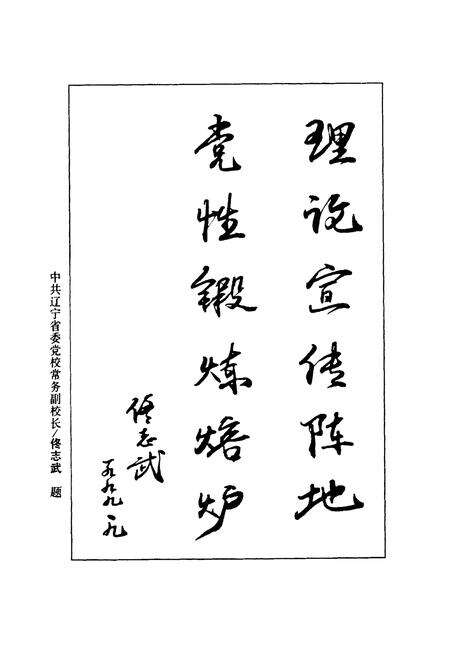 理论宣传阵地
党性锻炼熔炉
佟志武
一九九九、一、九
中共辽宁省委党校常务副校长/佟志武 题